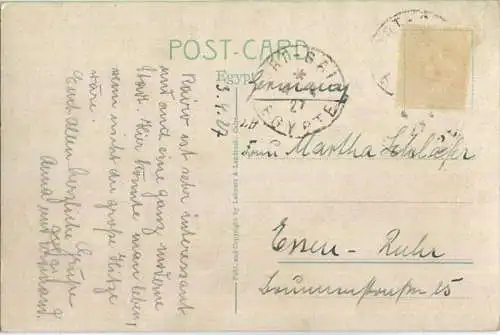 POST-CARD
Egypt
PORT-SAID
27
EGYPTE
Germany
3.4.27
Kairo ist sehr interessant
und auch eine ganz moderne
Stadt. Hier könnte man leben,
wenn nicht die große Hitze
wäre.
Euch allen herzliche Grüße
Anna und
Frau Martha Schläfer
Essen-Ruhr
Brunnenstraße 15
Publ. and Copyright by Lehnert & Landrock, Cairo